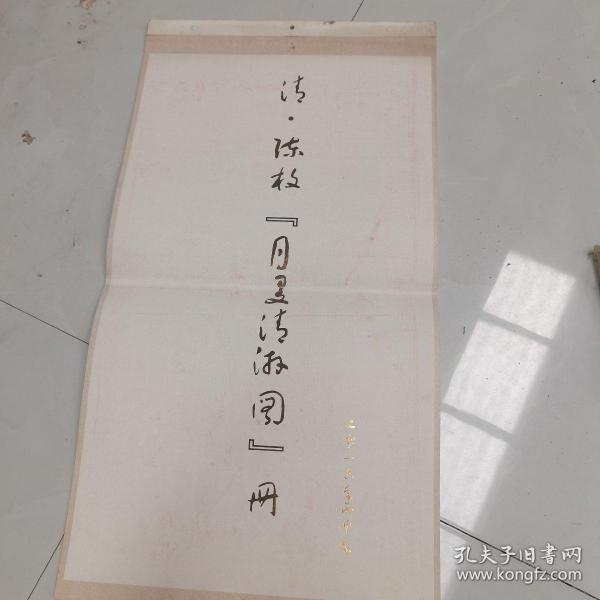 清·陈枚『月曼清游图』册
孔夫子旧书网
www.kongfz.com